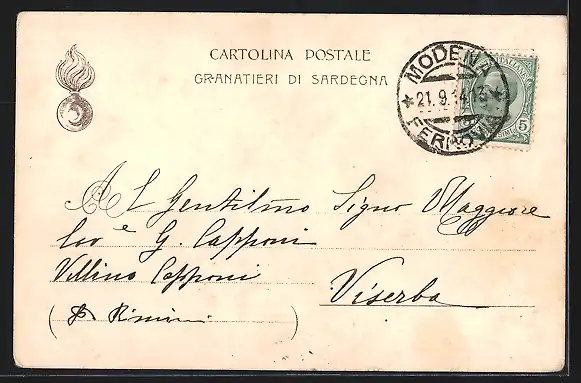 CARTOLINA POSTALE
GRANATIERI DI SARDEGNA
MODENA
21.9.14.13
FERROVIA
5
Al Gentilmo Signor Maggiore
G. Capponi
Villino Capponi
Viserba
( Rimini )